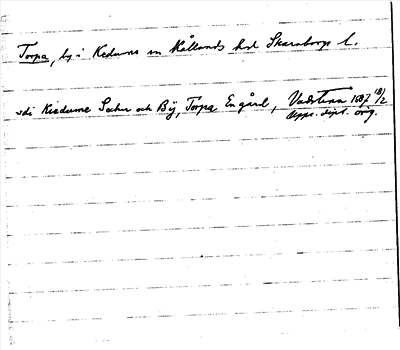 Torpa, by i Kedums sn Kållands hd Skaraborgs l.
vdi Kiedums Sochn och Bÿ, Torpa En gård, Vadstena 1587 18/2
Uppr. dipl. orig.